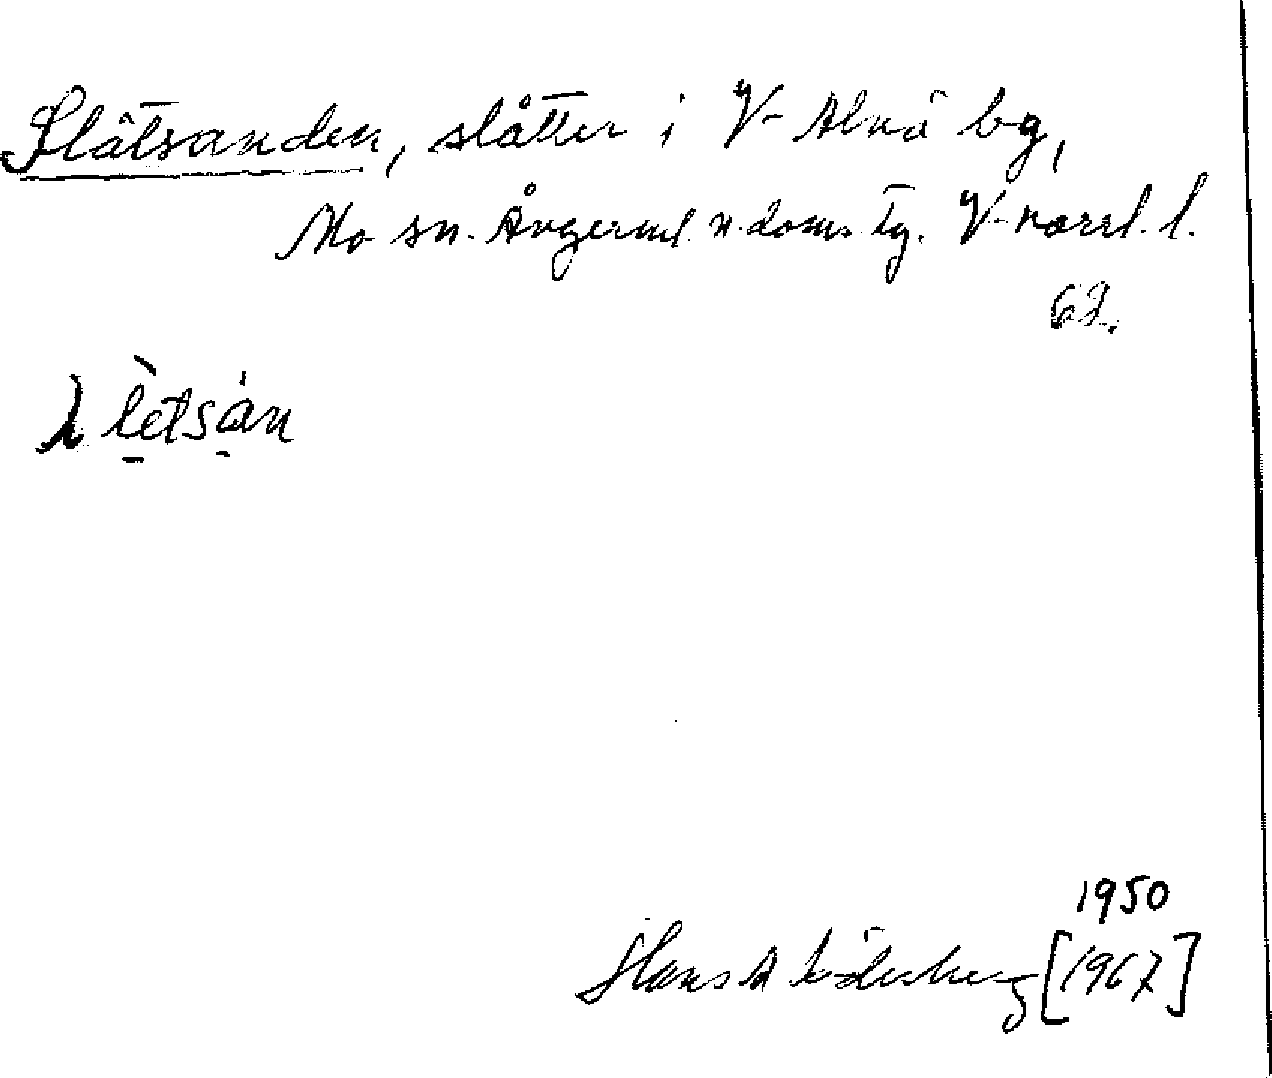 Slätsanden, slåtter i V-Alnä bg,
Mo sn. Ångerml. n. doms. tg. V-norrl. l.
62.
lètsán
1950
Hans A Söderberg [1967]